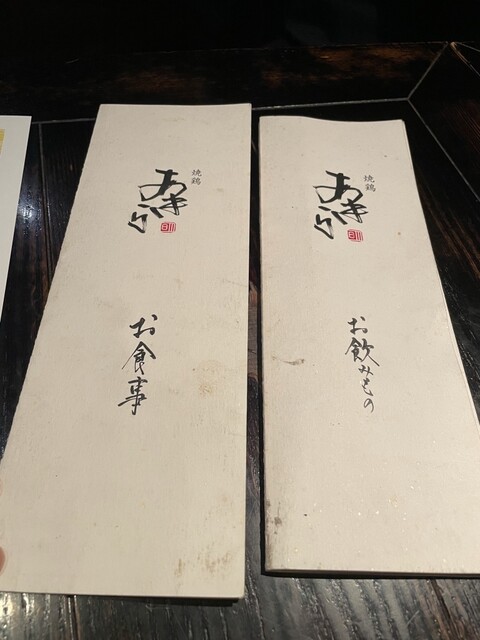 焼鶏
あきら
お食事
焼鶏
あきら
お飲みもの